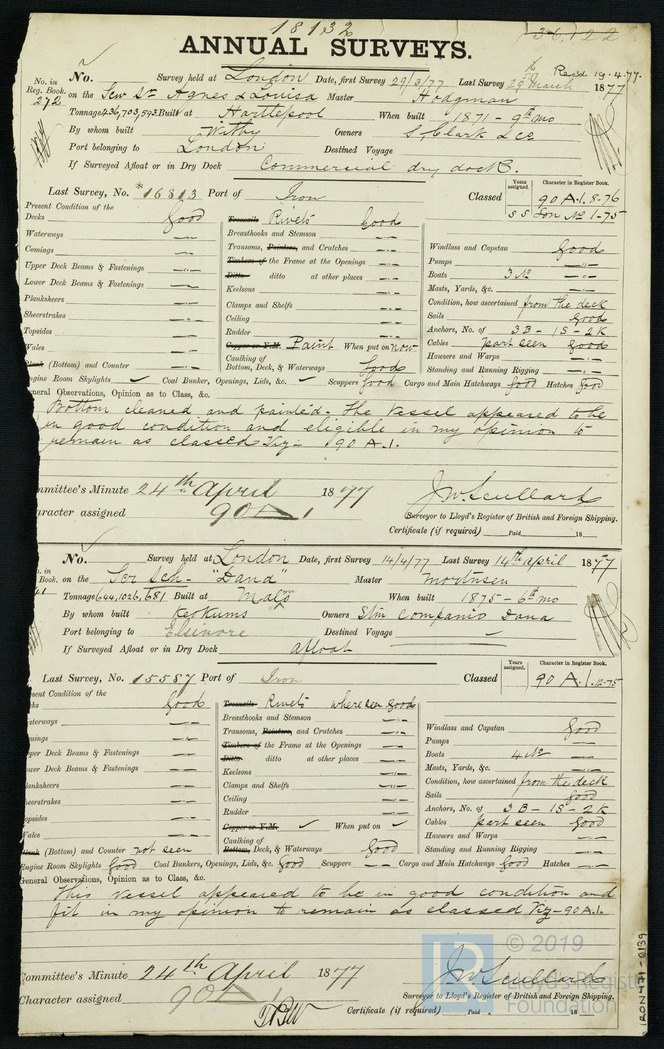 18132
36.122
ANNUAL SURVEYS.
Recd 19.4.77.
No. in Reg. Book. 272 No. Survey held at London Date, first Survey 29/3/77 Last Survey 29th March 1877
on the Scw Sr Agnes & Louisa Master Hodgman
Tonnage 436,703,593. Built at Hartlepool When built 1871 - 9th mo
By whom built Withy Owners S, Clark & Co
Port belonging to London Destined Voyage
If Surveyed Afloat or in Dry Dock Commercial dry dock.
Last Survey, No. *16813 Port of Iron Classed
Years assigned. Character in Register Book.
90 A.1. 8-76
S S Lon No 1-75
Present Condition of the
Decks Good
Waterways -"-
Comings -"-
Upper Deck Beams & Fastenings -"-
Lower Deck Beams & Fastenings -"-
Planksheers -"-
Sheerstrakes -"-
Topsides -"-
Wales -"-
Plank (Bottom) and Counter -"-
Treenails Rivets Good
Breasthooks and Stemson -"-
Transoms, Pointers, and Crutches -"-
Timbers of the Frame at the Openings -"-
Ditto ditto at other places -"-
Keelsons -"-
Clamps and Shelfs -"-
Ceiling -"-
Rudder -"-
Copper or Y.M. Paint When put on now
Caulking of Bottom, Deck, & Waterways Good
Windlass and Capstan Good
Pumps -"-
Boats 3 No -"-
Masts, Yards, &c. -"-
Condition, how ascertained from the deck
Sails Good
Anchors, No. of 3 B - 1 S - 2 K
Cables part seen good
Hausers and Warps -"-
Standing and Running Rigging -"-
Engine Room Skylights ✓ Coal Bunker, Openings, Lids, &c. ✓ Scuppers Good Cargo and Main Hatchways Good Hatches Good
General Observations, Opinion as to Class, &c.
Bottom cleaned and painted. The Vessel appeared to be
in good condition and eligible in my opinion to
remain as classed Viz - 90 A.1.
Committee's Minute 24th April 1877
Character assigned 90 A 1
J W Scullard
Surveyor to Lloyd's Register of British and Foreign Shipping.
Certificate (if required) Paid 18
Book. No. Survey held at London Date, first Survey 14/4/77 Last Survey 14th April 1877
on the Scr Sch. "Dana" Master Mortensen
Tonnage 644,1026,681 Built at When built 1875 - 6th mo
By whom built Kockums Owners Stm Companio Dana
Port belonging to Elsinore Destined Voyage
If Surveyed Afloat or in Dry Dock afloat
Last Survey, No. 15587 Port of Iron Classed
Years assigned. Character in Register Book.
90 A.1. 12-75
Present Condition of the
Decks Good
Waterways -"-
Comings -"-
Upper Deck Beams & Fastenings -"-
Lower Deck Beams & Fastenings -"-
Planksheers -"-
Sheerstrakes -"-
Topsides -"-
Wales -"-
Plank (Bottom) and Counter not seen
Treenails Rivets where seen Good
Breasthooks and Stemson -"-
Transoms, Pointers, and Crutches -"-
Timbers of the Frame at the Openings -"-
Ditto ditto at other places -"-
Keelsons -"-
Clamps and Shelfs -"-
Ceiling -"-
Rudder -"-
Copper or Y.M. ✓ When put on ✓
Caulking of Bottom, Deck, & Waterways Good
Windlass and Capstan Good
Pumps -"-
Boats 4 No -"-
Masts, Yards, &c. -"-
Condition, how ascertained from the deck
Sails Good
Anchors, No. of 3 B - 1 S - 2 K
Cables part seen Good
Hausers and Warps -"-
Standing and Running Rigging -"-
Engine Room Skylights Good Coal Bunkers, Openings, Lids, &c. Good Scuppers -"- Cargo and Main Hatchways Good Hatches -"-
General Observations, Opinion as to Class, &c.
This vessel appeared to be in good condition and
fit in my opinion to remain as classed Viz - 90 A.1.
Committee's Minute 24th April 1877
Character assigned 90 A 1
J W Scullard
Surveyor to Lloyd's Register of British and Foreign Shipping.
Certificate (if required) Paid 18
LR © 2019
Lloyd's Register
Foundation
IRON471-0139